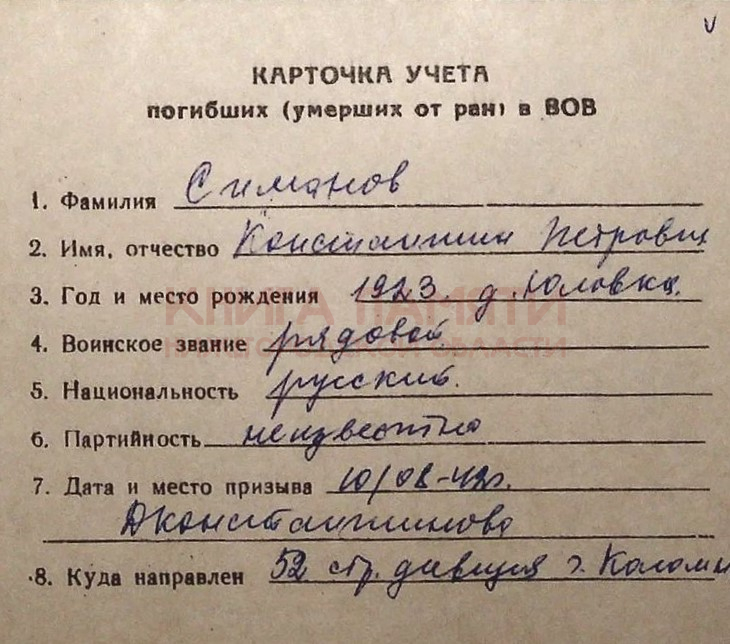 КАРТОЧКА УЧЕТА
погибших (умерших от ран) в ВОВ
1. Фамилия Симанов
2. Имя, отчество Константин Петрович
3. Год и место рождения 1923 д. Юловка.
КНИГА ПАМЯТИ
4. Воинское звание рядовой
НИЖЕГОРОДСКОЙ ОБЛАСТИ
5. Национальность русский.
6. Партийность неизвестно
7. Дата и место призыва 10/08-42г.
Дконстантиново
8. Куда направлен 52 стр. дивизия г. Колом